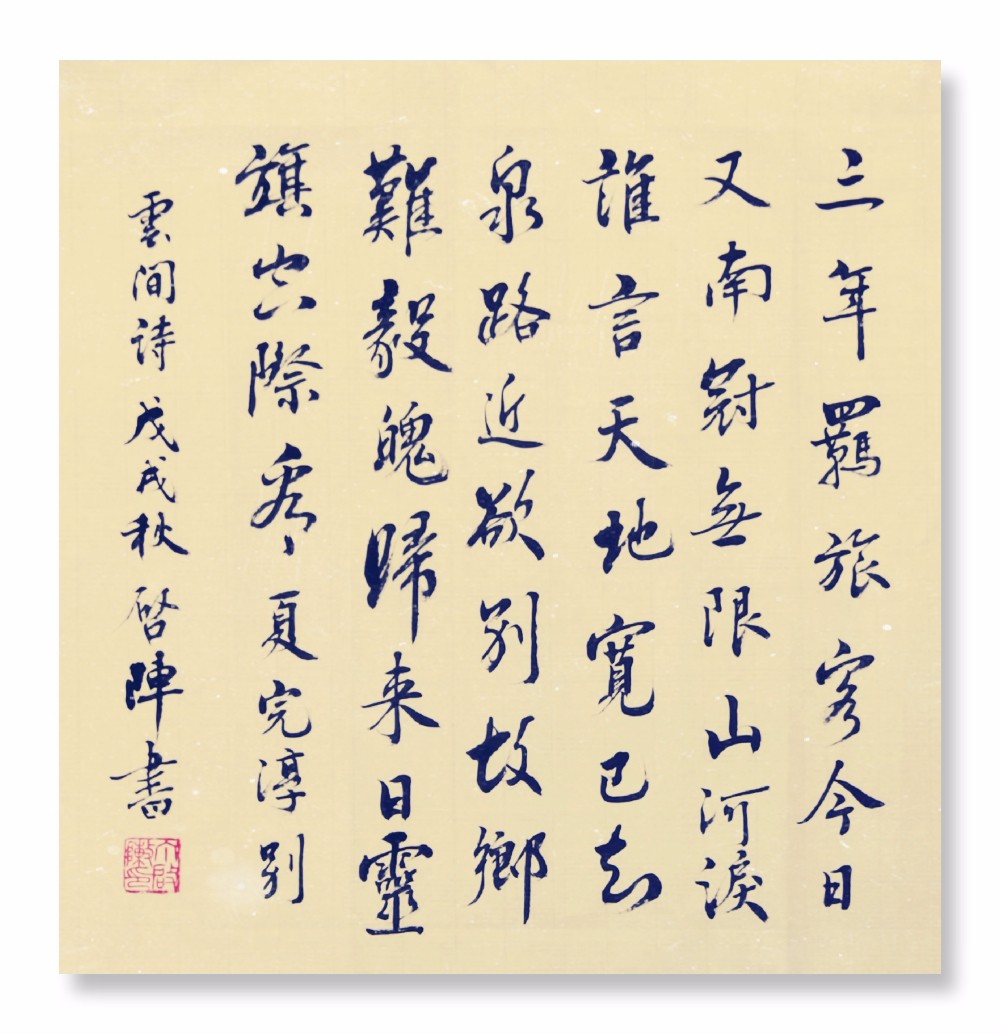 三年羈旅客今日
又南冠無限山河淚
誰言天地寬已知
泉路近欲别故鄉
難毅魄歸来日靈
旗空際看夏完淳别
雲間诗戊戌秋啓陣書